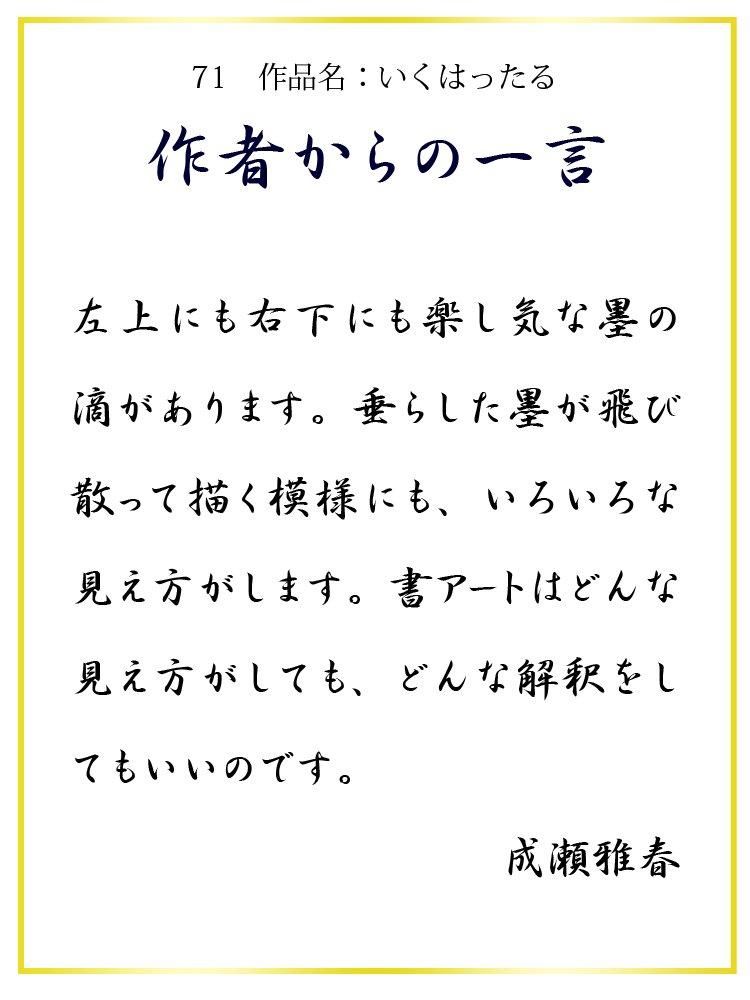 71　作品名：いくはったる
作者からの一言
左上にも右下にも楽し気な墨の
滴があります。垂らした墨が飛び
散って描く模様にも、いろいろな
見え方がします。書アートはどんな
見え方がしても、どんな解釈をし
てもいいのです。
成瀬雅春